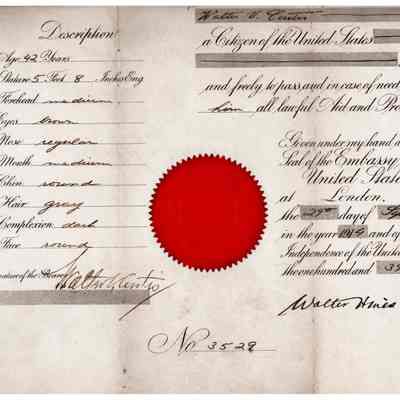 Description
Age 42 Years
Stature 5 Feet 8 Inches Eng
Forehead medium
Eyes brown
Nose regular
Mouth medium
Chin round
Hair gray
Complexion dark
Face round
Signature of the Bearer
Walter V. Curtis
a Citizen of the United States
and freely to pass and in case of need
him all lawful Aid and Pro
Given under my hand a
Seal of the Embassy
United State
at London.
the 29th day of
in the year 1914 and of
Independence of the United
the one hundred and 39
Walter Hines
No 3529